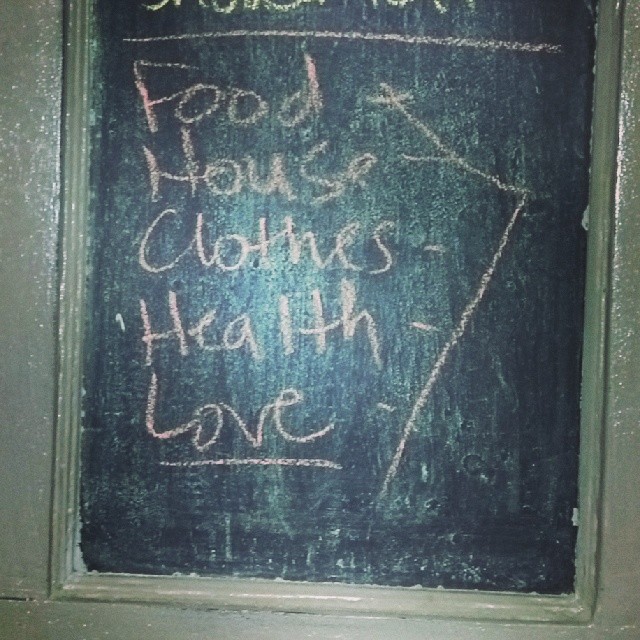 Food
House -
Clothes -
Health -
Love -